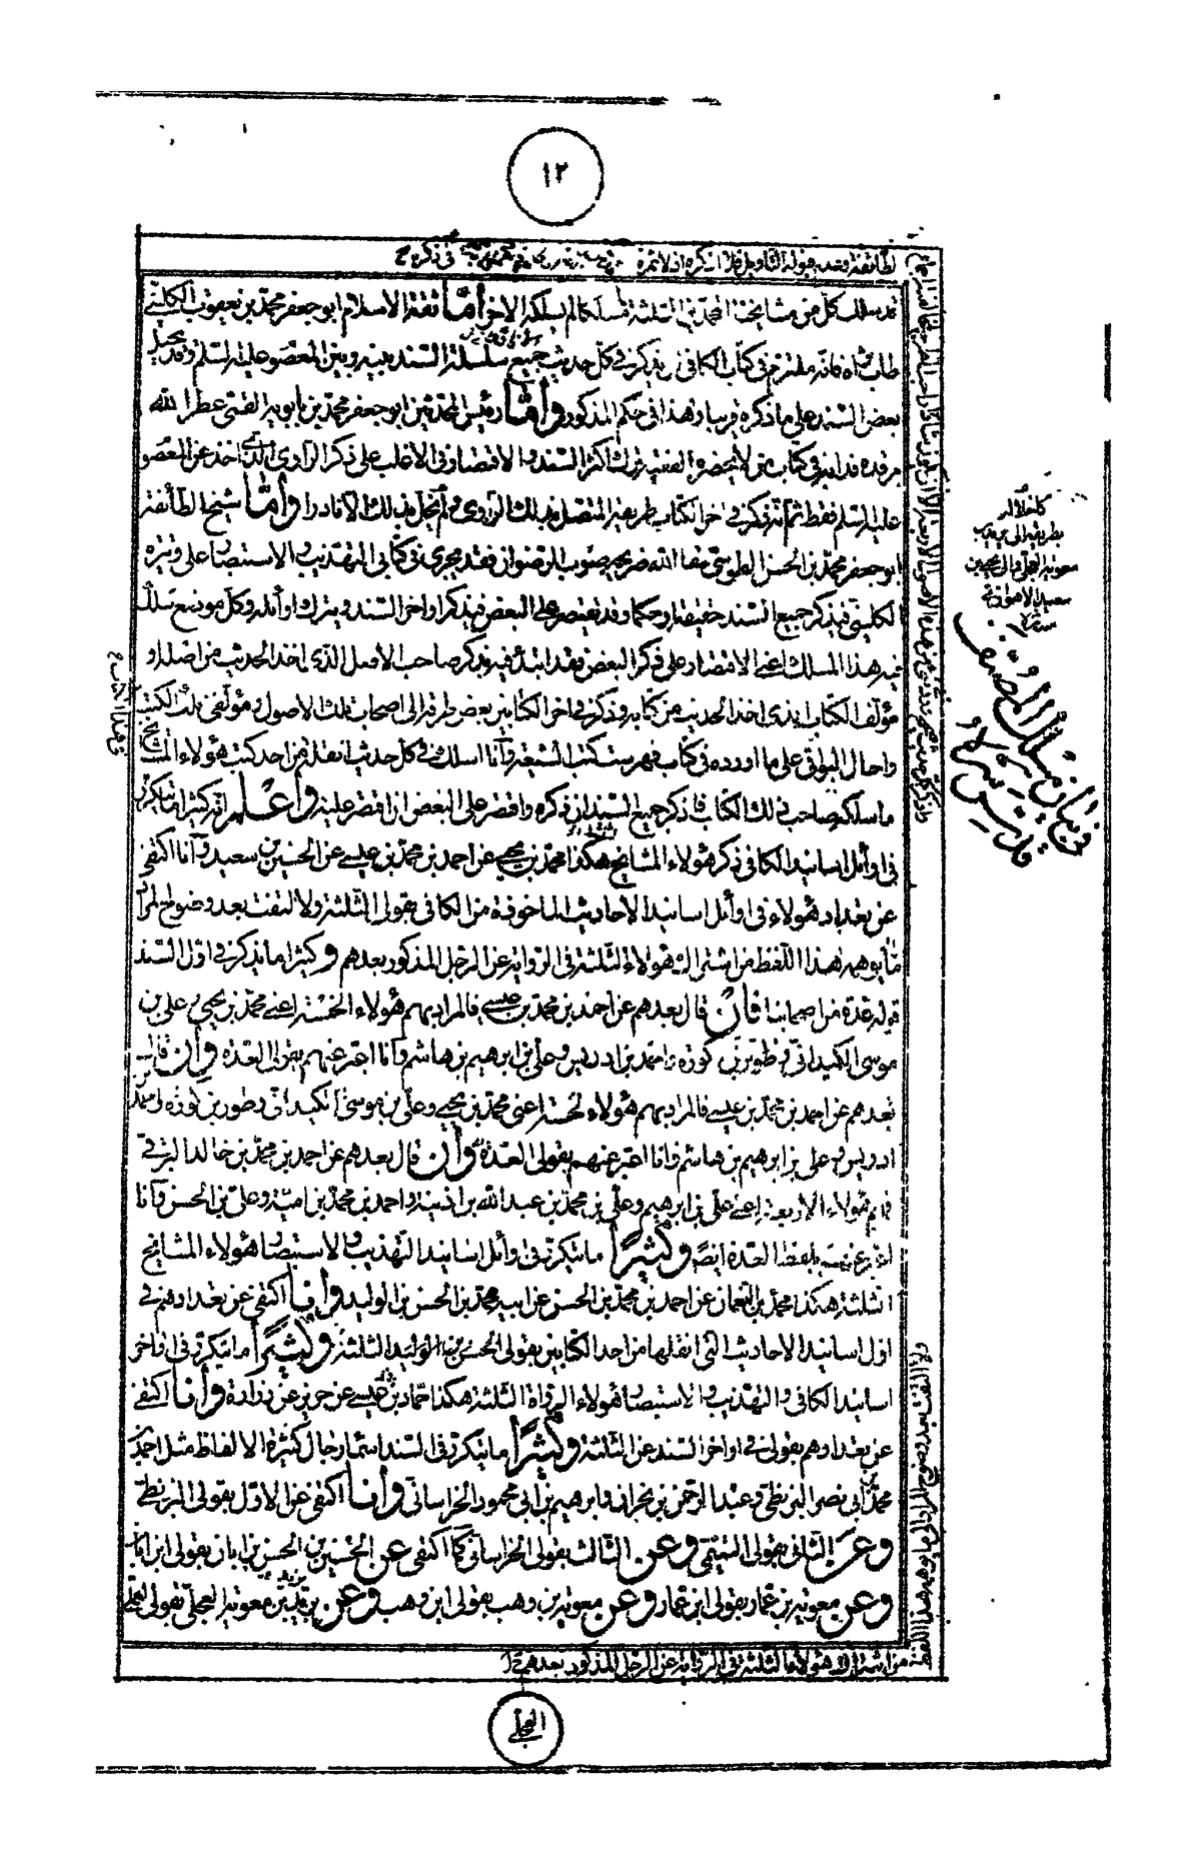 ١٢
قد سلك كل من مشايخنا المحمدين الثلثة مسلكا لم يسلكه الاخر أما ثقة الاسلام ابو جعفر محمد بن يعقوب الكليني
طاب ثراه فانه ملتزم في كتاب الكافي ان يذكر في كل حديث جميع سلسلة السند بينه وبين المعصوم عليه السلم وقد يحيل
بعض السند على ما ذكره قريبا وهذا في حكم المذكور وأما رئيس المحدثين ابو جعفر محمد بن بابويه القمي عطر الله
مرقده فدابه في كتاب من لا يحضره الفقيه ترك اكثر السند والاقتصار في الاغلب على ذكر الراوي الذي اخذ عن المعصوم
عليه السلم فقط ثم انه ذكر في اخر الكتاب طريقه المتصل بذلك الراوي ولم يخل بذلك الا نادرا وأما شيخ الطائفة
ابو جعفر محمد بن الحسن الطوسي سقا الله ضريحه صوب الرضوان فقد يجري في كتابي التهذيب والاستبصار على وتيرة
الكليني فيذكر جميع السند حقيقة او حكما وقد يقتصر على البعض فيذكر اواخر السند ويترك اوائله وكل موضع سلك
فيه هذا المسلك اعني الاقتصار على ذكر البعض فقد ابتدأ فيه بذكر صاحب الاصل الذي اخذ الحديث من اصله او
مؤلف الكتاب الذي اخذ الحديث من كتابه وذكر في اخر الكتابين بعض طرقه الى اصحاب تلك الاصول ومؤلفي تلك الكتب
واحال البواقي على ما اورده في كتاب فهرست كتب الشيعة وانا اسلك في كل حديث انقله من احد كتب هؤلاء المشايخ
ما سلكه صاحب ذلك الكتاب فاذكر جميع السند ان ذكره واقتصر على البعض ان اقتصر عليه واعلم انه كثيرا ما يتكرر
في اوائل اسانيد الكافي ذكر هؤلاء المشايخ هكذا محمد بن يحيى عن احمد بن محمد بن عيسى عن الحسين بن سعيد وانا اكتفي
عن تعداد هؤلاء في اوائل اسانيد الاحاديث الماخوذة من الكافي بقولي الثلثة ولا التفت بعد وضوح المراد
ما يوهمه هذا اللفظ من اشتراك هؤلاء الثلثة في الرواية عن الرجل المذكور بعدهم وكثيرا ما يذكر في اول السند
قوله عدة من اصحابنا فان قال بعدهم عن احمد بن محمد بن عيسى فالمراد بهم هؤلاء الخمسة اعني محمد بن يحيى وعلي بن
موسى الكميداني وداود بن كورة واحمد بن ادريس وعلي بن ابرهيم بن هاشم وانا اعبر عنهم بقولي العدة وان قال
بعدهم عن احمد بن محمد بن عيسى فالمراد بهم هؤلاء الخمسة اعني محمد بن يحيى وعلي بن موسى الكميداني وداود بن كورة واحمد
ادريس وعلي بن ابرهيم بن هاشم وانا اعبر عنهم بقولي العدة وان قال بعدهم عن احمد بن محمد بن خالد البرقي
فهم هؤلاء الاربعة اعني علي بن ابرهيم وعلي بن محمد بن عبد الله بن اذينة واحمد بن محمد بن امية وعلي بن الحسن وانا
اعبر عنهم بلفظ العدة ايضا وكثيرا ما يتكرر في اوائل اسانيد التهذيب والاستبصار هؤلاء المشايخ
الثلثة هكذا محمد بن النعمان عن احمد بن محمد بن الحسن عن ابيه محمد بن الحسن بن الوليد وانا اكتفي عن تعدادهم في
اول اسانيد الاحاديث التي انقلها من احد الكتابين بقولي الثلثة وكثيرا ما يتكرر في اواخر
اسانيد الكافي والتهذيب والاستبصار هؤلاء الرواة الثلثة هكذا حماد بن عيسى عن حريز عن زرارة وانا اكتفي
عن تعدادهم بقولي في اواخر السند عن الثلثة وكثيرا ما يتكرر في السند اسماء رجال كثيرة الالفاظ مثل احمد بن
محمد بن ابي نصر البزنطي وعبد الرحمن بن نجران وابرهيم بن ابي محمود الخراساني وانا اكتفي عن الاول بقولي البزنطي
وعن الثاني بقولي التميمي وعن الثالث بقولي الخراساني كما اكتفي عن الحسين بن الحسن بن ابان بقولي ابن ابان
وعن معوية بن عمار بقولي ابن عمار وعن معوية بن وهب بقولي ابن وهب وعن بريد بن معوية العجلي بقولي العجلي
من اشتراك هؤلاء الثلثة في الرواية عن الرجل المذكور بعدهم
العجلي
معوية العجلي والى محمد بن
سعيد الاهوازي
في بيان مسالك المصنف
قدس سره